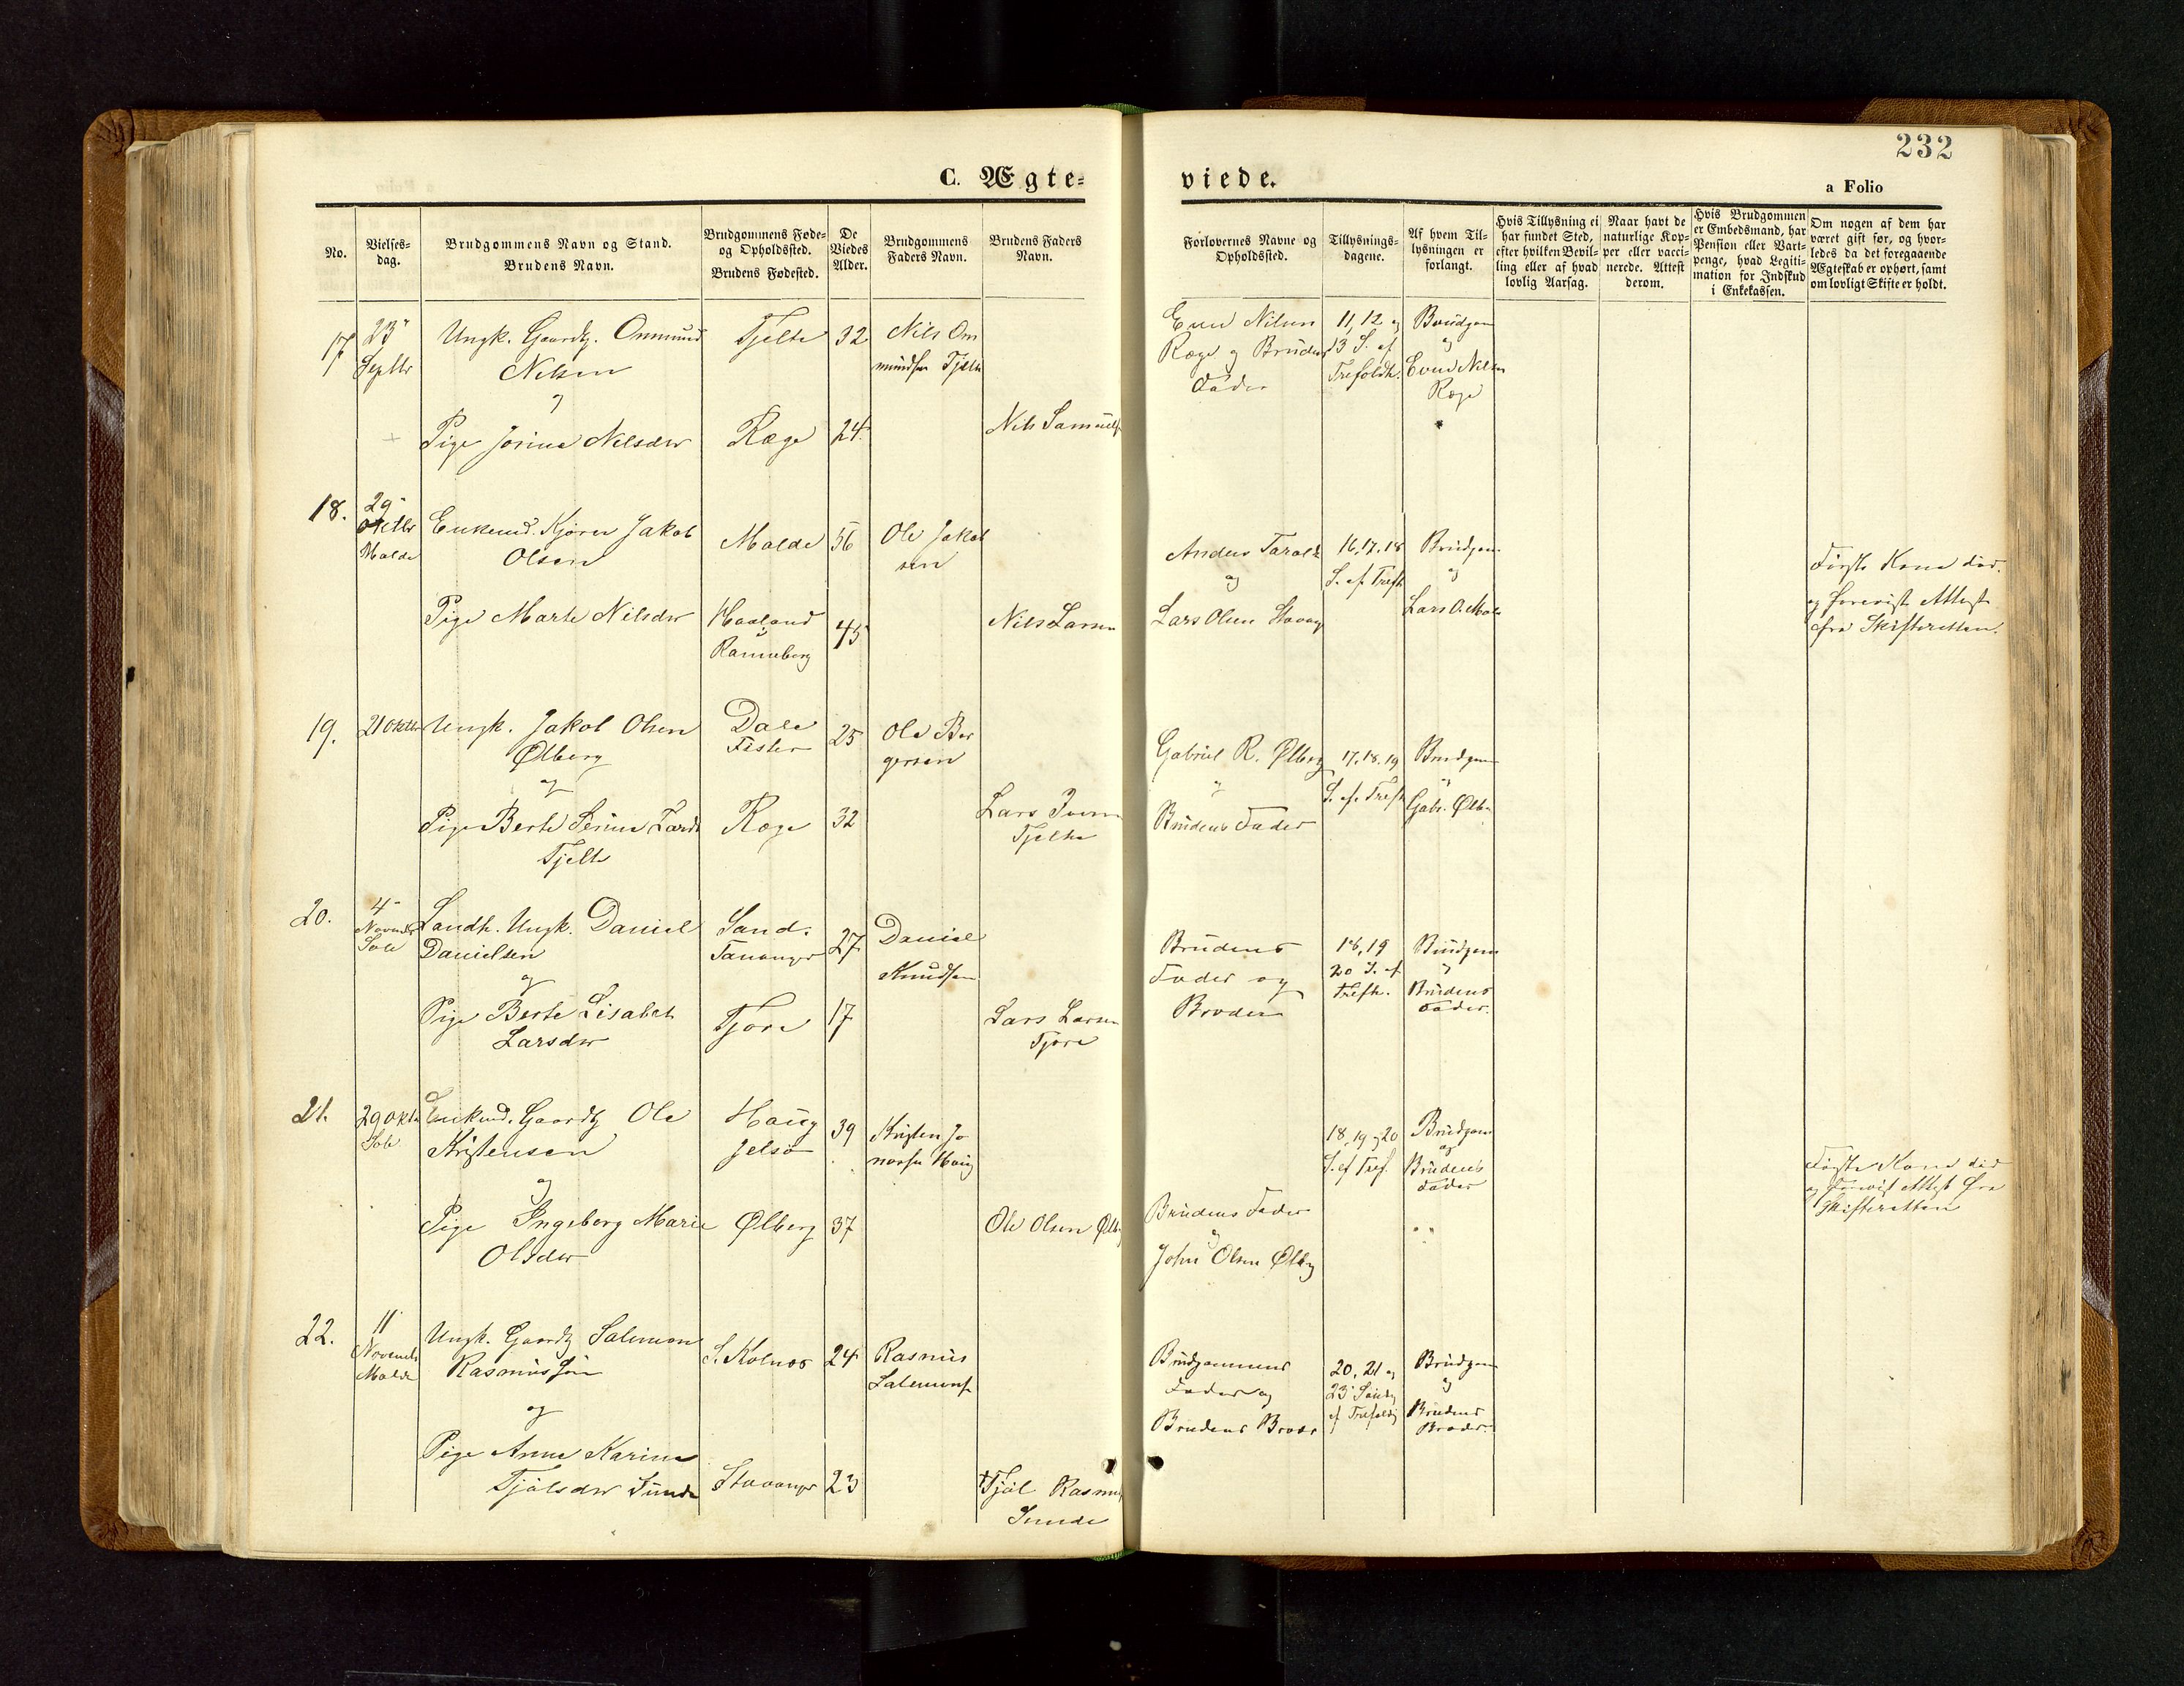 232
C. Ægte-
viede.
a Folio
No.
Vielses-
dag.
Brudgommens Navn og Stand.
Brudens Navn.
Brudgommens Føde-
og Opholdssted.
Brudens Fødested.
De
Viedes
Alder.
Brudgommens
Faders Navn.
Brudens Faders
Navn.
Forlovernes Navne og
Opholdssted.
Tillysnings-
dagene.
Af hvem Til-
lysningen er
forlangt.
Hvis Tillysning ei
har fundet Sted,
efter hvilken Bevil-
ling eller af hvad
lovlig Aarsag.
Naar havt de
naturlige Kop-
per eller vacci-
nerede. Attest
derom.
Hvis Brudgommen
er Embedsmand, har
Pension eller Vart-
penge, hvad Legiti-
mation for Indskud
i Enkekassen.
Om nogen af dem har
været gift før, og hvor-
ledes da det foregaaende
Ægteskab er ophørt, samt
om lovligt Skifte er holdt.
17.
23
Septbr
Ungk. Gaardbr. Ommund
Nilsen
og
Pige Jorina Nilsdtr
Tjelte
Ræge
32
24
Nils Om
mundsen Tjelte
Nils Samuels
Nilsen
Ræge og Brudens
Fader
11, 12 og
13 S. ef
Trefoldh.
Brudgom
og
Nilsen
Ræge
18.
29
Oktbr
Malde
Enkemd. Jakob
Olsen
Pige Marte Nilsdtr
Malde
Haaland
Ranneberg
56
45
Ole Jakob
sen
Nils Larsen
Anders Taralds
og
Lars Olsen
16, 17, 18
S. ef. Trefh
Brudgom
og
Lars O. Mal
Første Kone død
og forevist Attest
fra Skifteretten.
19.
21 Oktbr
Ungk. Jakob Olsen
Ølberg
og
Pige Berte Serine Larsd
Tjelte
Dale
Fister
Ræge
25
32
Ole Bør
gersen
Lars
Tjelte
Gabriel R. Ølberg
og
Brudens Fader
17. 18. 19
S. ef. Trefh
Brudgom
og
Gabr. Ølb
20.
4
Novembr
Sole
Landh. Ungk. Daniel
Danielsen
og
Pige Berte Lisabet
Larsdtr
Sand.
Tananger
Tjora
27
17
Daniel
Knudsen
Lars Larsen
Tjora
Brudens
Fader og
Broder
18, 19
20 S. ef
Trefh.
Brudgom
og
Brudens
Fader.
21.
29 Okt
Sole
Enkemd. Gaardb Ole
Kristensen
og
Pige Ingeborg Marie
Olsdtr
Haug
Jelsø
Ølberg
39
37
Kristen Jo
nassen Haug
Ole Olsen Ølb
Brudens Fader
og
John Olsen Ølbg
18, 19 og 20
S. ef Tref.
Brudgom
og
Brudens
Fader
Første Kone død
og forevist Attest fra
Skifteretten
22.
11
Novemb
Malde
Ungk. Gaardb Salemon
Rasmussøn
og
Pige Anna Karine
Tjølsdtr Sunde
S. Kolnes
Stavanger
24
23
Rasmus
Salemons
Tjøl Rasmus
Sunde
Brudgommens
Fader og
Brudens Broder
20, 21 og
23 Sønd
ef Trefoldh
Brudgom
og
Brudens
Broder.